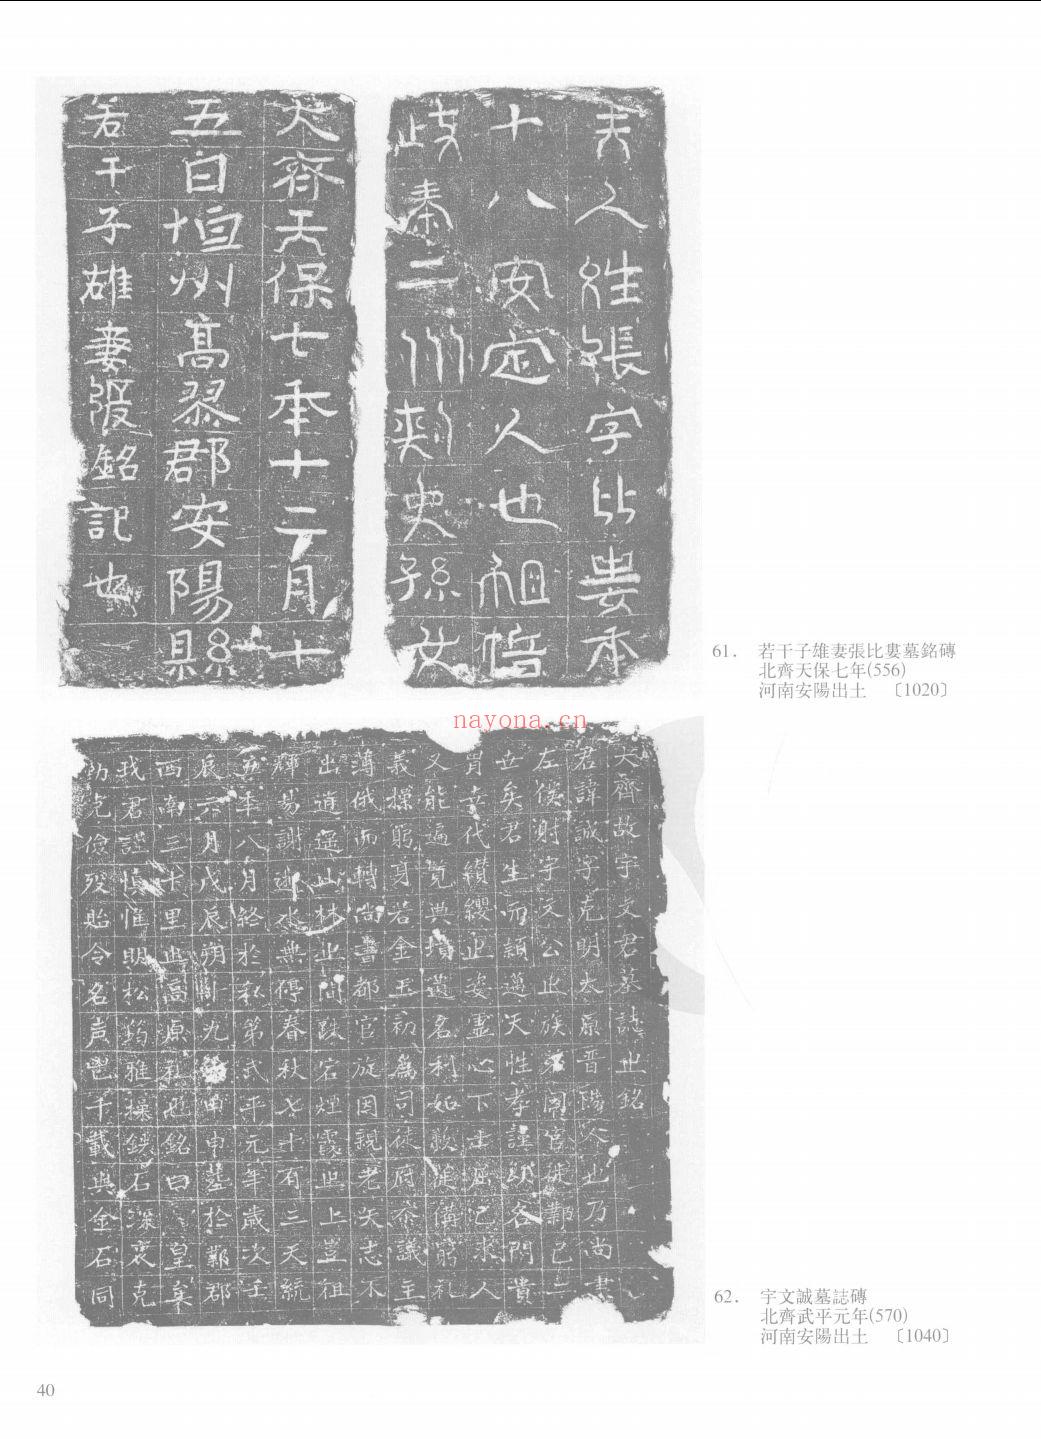 大齊天保七年十二月十
五日恒州高翏郡安陽縣
若干子雄妻張銘記也
夫人姓張字比婁年
十八安定人也祖悟
歧秦二州刺史孫女
61. 若干子雄妻張比婁墓銘磚
北齊天保七年(556)
河南安陽出土 〔1020〕
nayona.cn
大齊故宇文君墓誌之銘
君諱誠字克明太原晉陽人也乃尚書
左僕射宇文公之族弟閥宦徙鄴已二
世矣君生而穎邁天性孝謹各閥貴
胄幸代纘纓之姿靈心下士屈己求人
又能遍覽典墳遺名利如敝屣備窮礼
義操躬身若金玉初為司徒府參議主
薄俄而轉尚書都官旋因親老矢志不
出逍遥山林之間跌宕煙霞之上豈徂
輝易謝逝水無停春秋七十有三天統
五年八月終於私第武平元年歲次壬
辰六月戊辰朔十九甲申塟於鄴郡
西南三十里之高原礼也銘曰皇弃
我君謹慎惟明松筠雅操鐵石深衷克
勤克儉歿貽令名声邑千載與金石同
62. 宇文誠墓誌磚
北齊武平元年(570)
河南安陽出土 〔1040〕
40